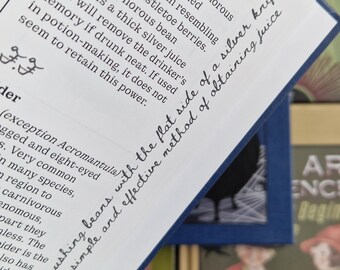 resembling
rious bean
stletoe berries.
s a thick silver juice
will remove the drinker's
emory if drunk, if used
in potion-making, it does not
seem to retain this power.
der
(exception Acromantula)
gged and eight-eyed
s. Very common
n region to
in many species,
carnivorous
enomous,
part they
mless. The
pider is the
also has
ushing beans with the flat side of a silver knif
simple and effective method of obtaining juice
AR
ENCE
Begin